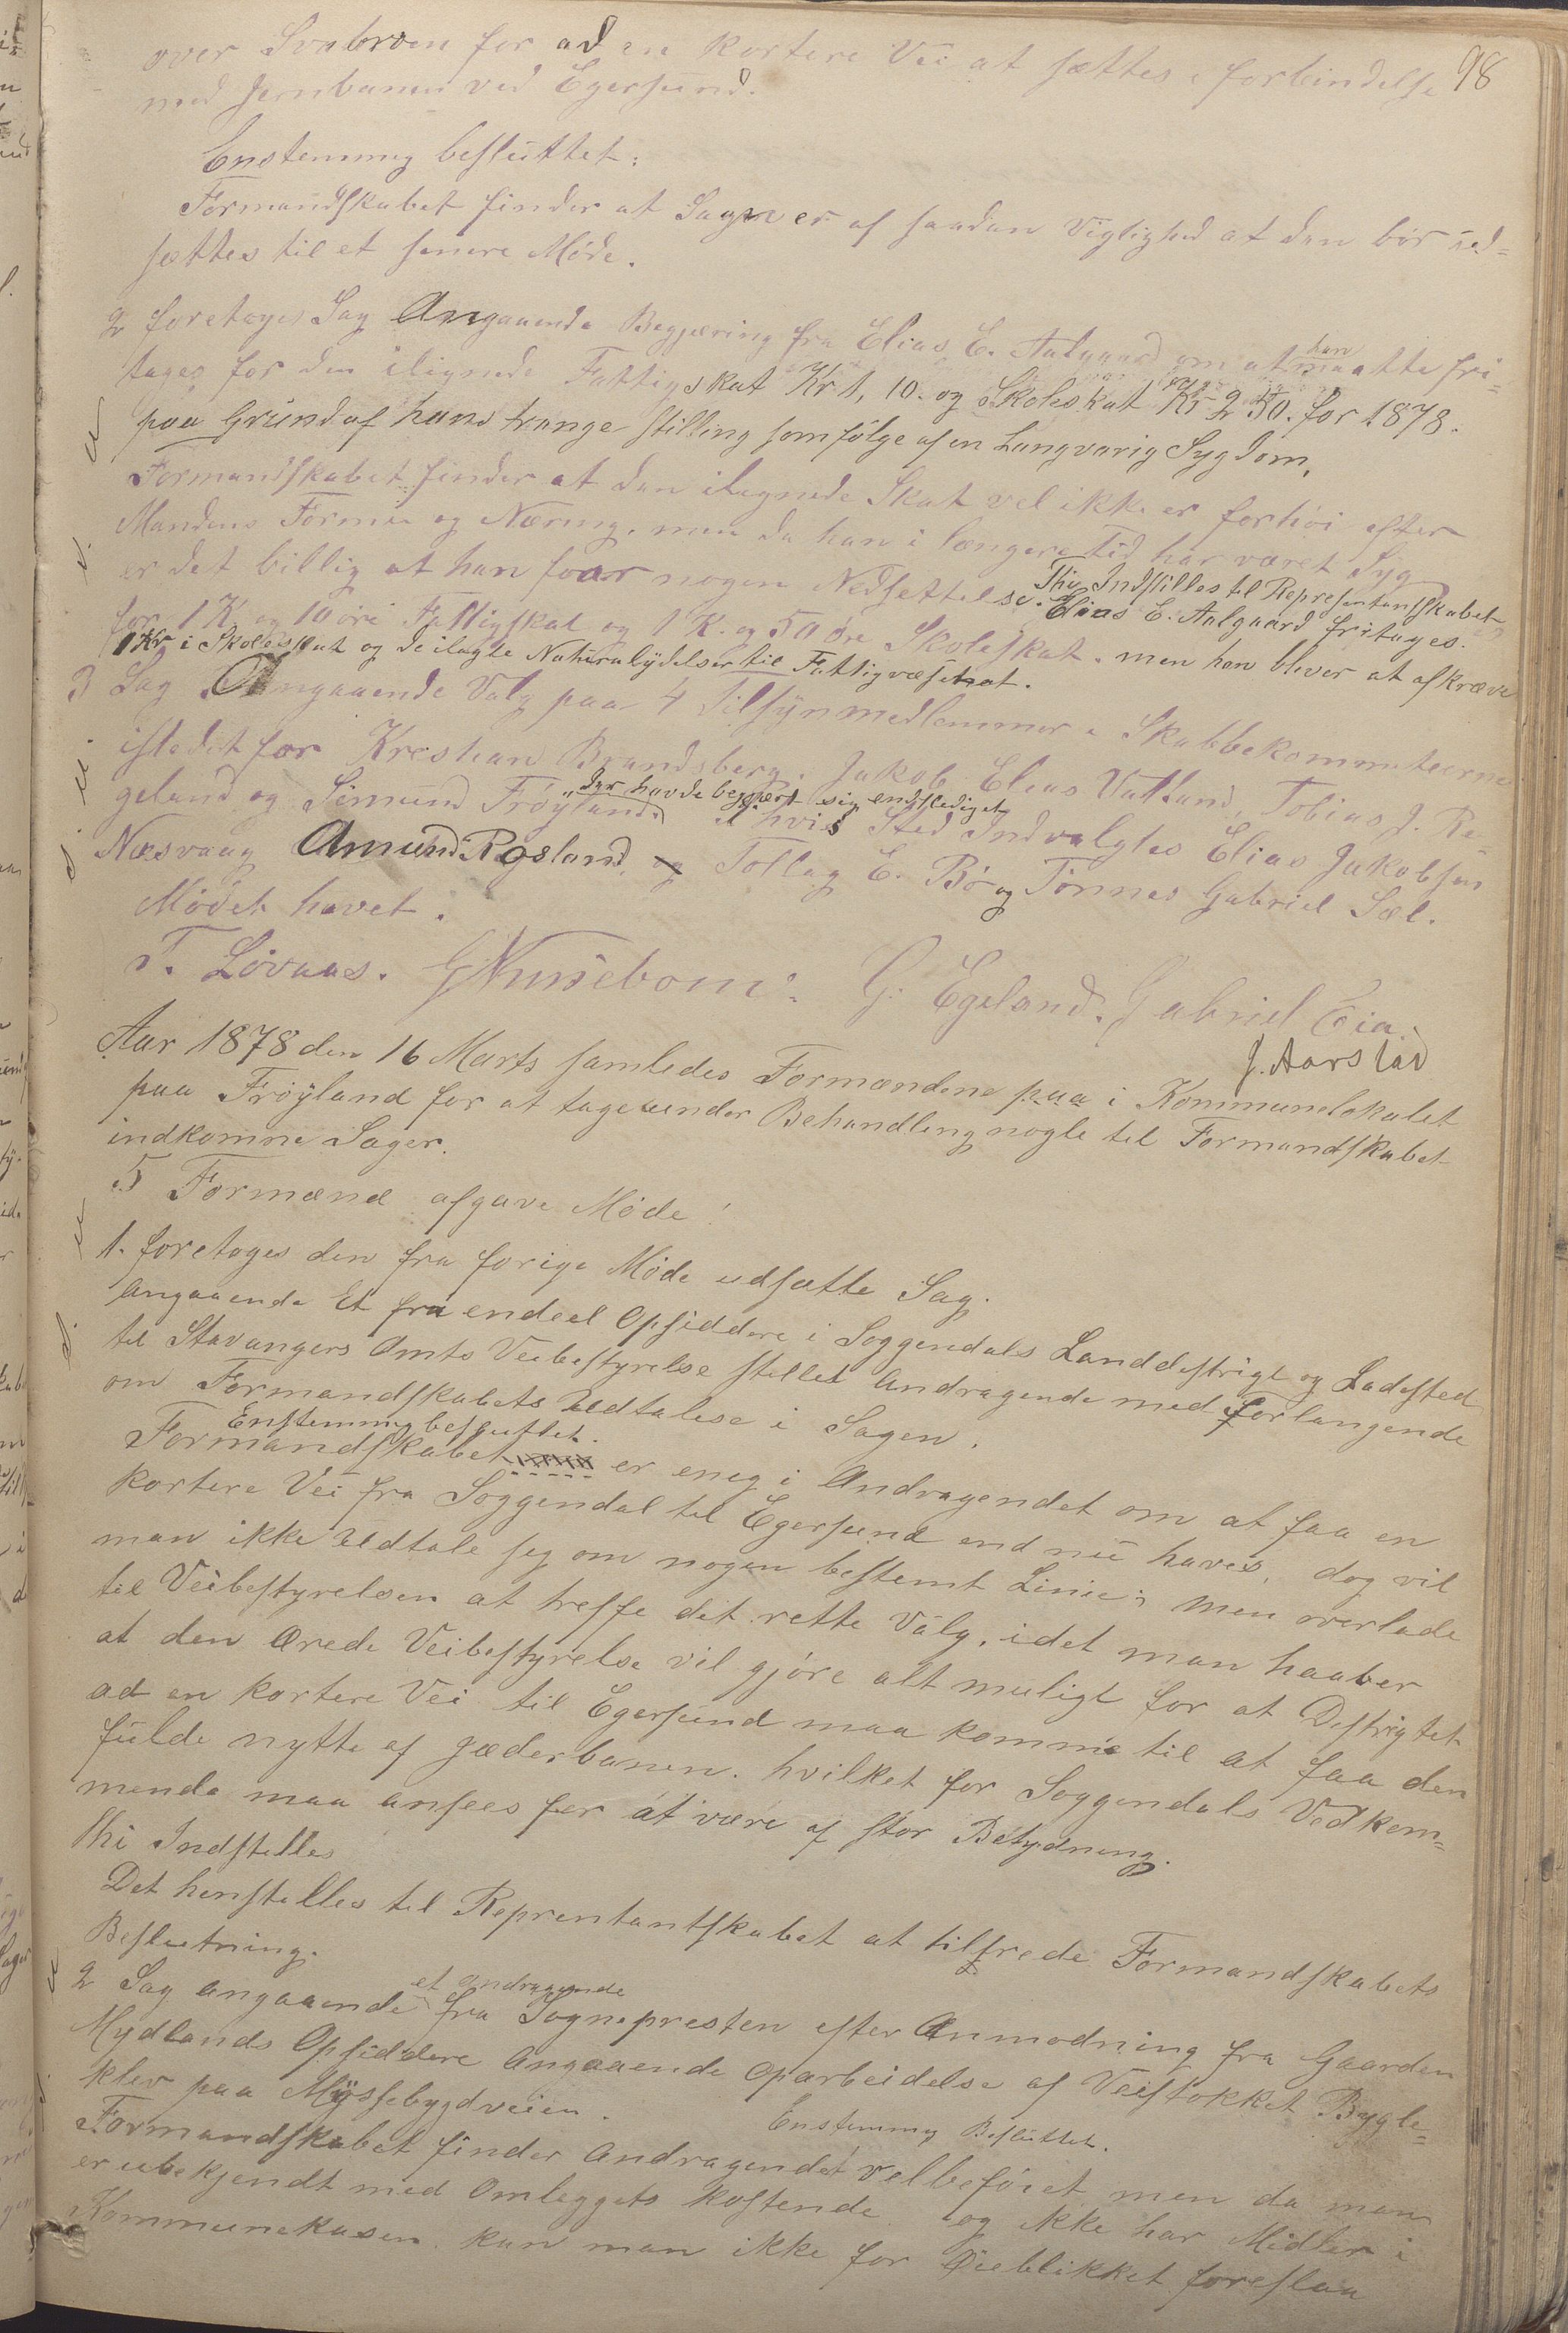 98
over Svabroen for ad en kortere Vei at sættes i forbindelse
med Jernbanen ved Egersund.
Enstemmig besluttet:
Formandskabet finder at Sagen er af saadan Vigtighed at den bør ud=
sættes til et senere Møde.
2 foretages Sag Angaaende Begjæring fra Elias E. Aalgaard om at han maatte fri=
tages for den ilignede Fattigskat Kr 1,10. og Skoleskat Kr 2 50. for 1878.
paa Grund af hans trange Stilling som følge af en Langvarig Sygdom,
Formandskabet finder at den ilegnede Skat vel ikke er forhøi efter
Mandens Formue og Næring, men da han i længere Tid har været Syg
er det billig at han faar nogen Nedsettelse. Thi Indstilles til Representanskabet
Elias E. Aalgaard fritages.
for 1 K og 10 øre Fattigskat og 1 K. og 50 øre Skoleskat. men han bliver at afkræve
1 Kr i Skoleskat og de ilagte Naturalydelser til Fattigvæsenet.
3 Sag Angaaende Valg paa 4 Tilsynmedlemmer i Skabbekommiteerne
istedet for Kreshan Brandsberg. Jakob Elias Vatland, Tobias J. Re=
geland og Simund Frøyland. "der havde begjært sig endslediget I hvis Sted Indvalgtes Elias Jakobsen
Næsvaag Amund Rosland, og Tollag E. Bø og Tønnes Gabriel Sæl.
Mödet hævet.
T. Lövaas. G Nussebom. G. Egeland. Gabriel Eia.
J. Aarstad
Aar 1878 den 16 Marts samledes Formændene paa i Kommunelokalet
paa Frøyland for at tage under Behandling nogle til Formandskabet
indkomne Sager.
5 Formænd afgave Møde!
1. foretages den fra forige Møde udsatte Sag.
Angaaende Et fra endeel Opsiddere i Soggendals Landdistrigt og Ladested
til Stavangers Amts Veibestyrelse stillet Andragende med Forlangende
om Formandskabets Udtalese i Sagen.
Enstemmig besluttet.
Formandskabet er eneg i Andragendet om at faa en
kortere Vei fra Soggendal til Egersund end nu haves, dog vil
man ikke Udtale seg om nogen bestemt Linie; men overlade
til Veibestyrelsen at treffe det rette Valg, idet man haaber
at den Ærede Veibestyrelse vil gjøre alt muligt for at Distrigtet
ad en kortere Vei til Egersund maa komme til at faa den
fulde nytte af Jæderbanen. hvilket for Soggendals Vedkom=
mende maa ansees for at være af stor Betydning.
Thi Indstelles
Det henstelles til Reprentantskabet at tilfrede Formandskabets
Besluttning.
2 Sag angaaende et andragende fra Sognepresten efter Anmodning fra Gaarden
Mydlands Opsiddere Angaaende Oparbeidelse af Veistokket Bygle=
klev paa Myssebygdveien. Enstemmig Besluttet.
Formandskabet finder Andragendet velbeføiet men da man
er ubekjendt med Omleggets kostende og ikke har Midler i
Kommunekasen kan man ikke for Øieblikket foreslaa